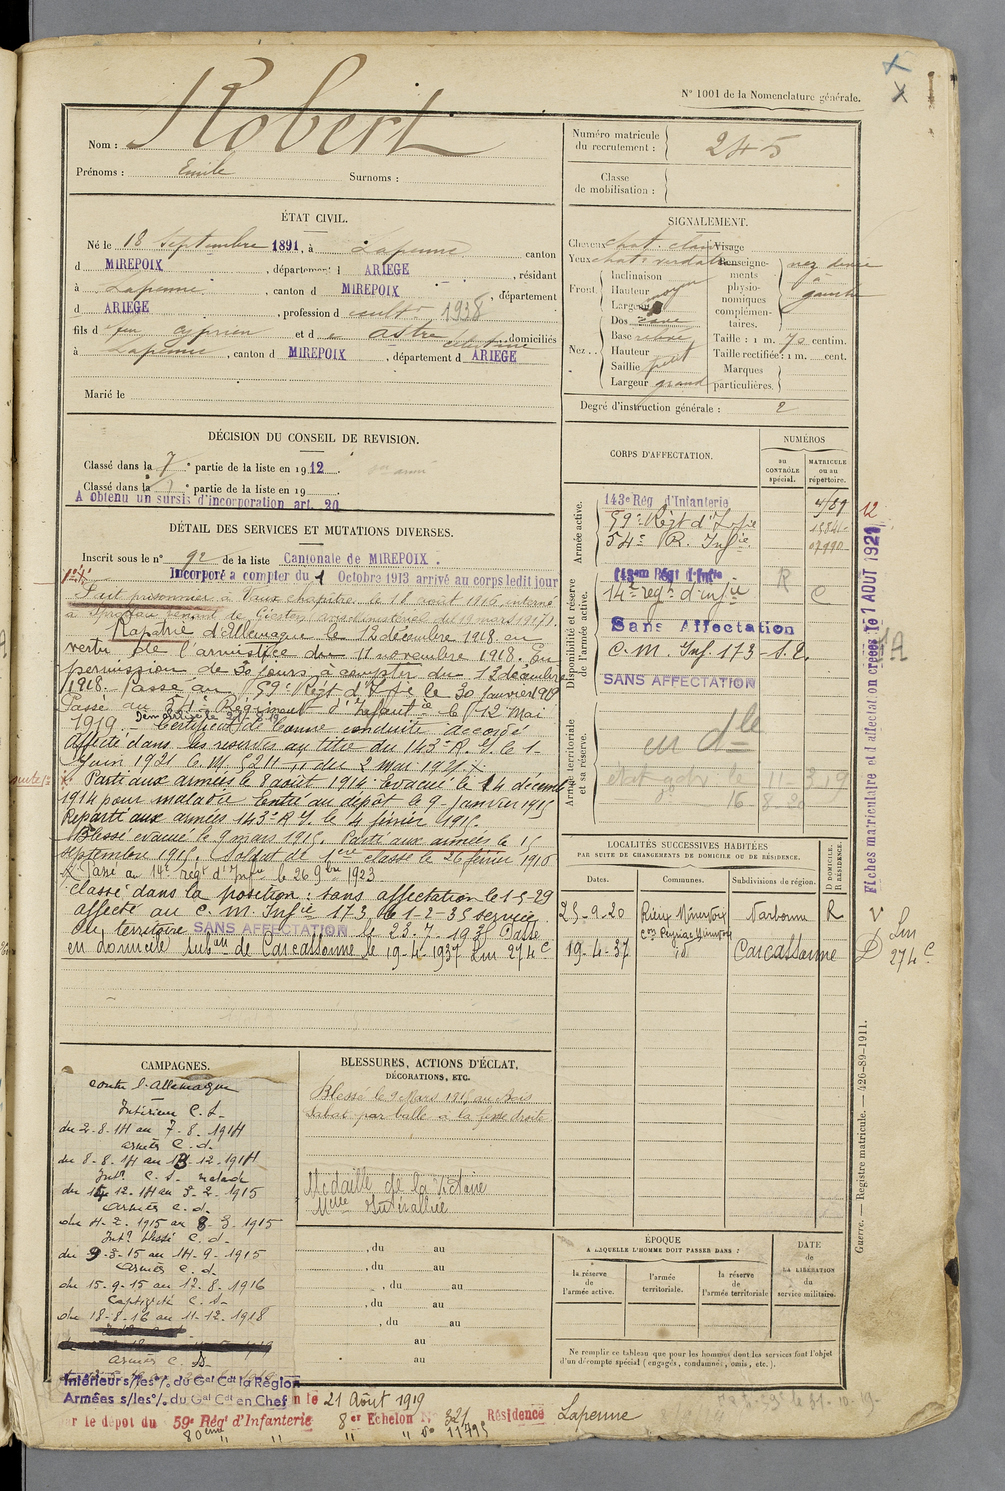 N° 1001 de la Nomenclature générale.
Nom : Robert
Prénoms : Emile Surnoms :
Numéro matricule du recrutement : 245
Classe de mobilisation :
ÉTAT CIVIL.
Né le 18 Septembre 1891, à Lapenne canton
d MIREPOIX, département d ARIEGE, résidant
à Lapenne, canton d MIREPOIX, département
d ARIEGE, profession d cult 1938
fils d feu Cyprien et d e astre Célestine domiciliés
à Lapenne, canton d MIREPOIX, département d ARIEGE
Marié le
SIGNALEMENT.
Cheveux chat. clair Visage
Yeux chat. verdatre
Renseignements physionomiques complémentaires. nez dévié à gauche
Front. Inclinaison
Hauteur moyen
Largeur
Nez. Dos cave
Base relevé
Hauteur
Saillie petit
Largeur grand
Taille : 1 m. 70 centim.
Taille rectifiée : 1 m. cent.
Marques particulières.
Degré d'instruction générale : 2
DÉCISION DU CONSEIL DE REVISION.
Classé dans la 7e partie de la liste en 1912.
Classé dans la e partie de la liste en 19
A obtenu un sursis d'incorporation art. 20
DÉTAIL DES SERVICES ET MUTATIONS DIVERSES.
Inscrit sous le n° 92 de la liste Cantonale de MIREPOIX.
Incorporé a compter du 1 Octobre 1913 arrivé au corps ledit jour
Fait prisonnier à Vaux chapitre le 18 août 1916, interné
à venant de Giessen
Rapatrié d'Allemagne le 12 décembre 1918 en
vertu de l'armistice du 11 novembre 1918. En
permission de 30 jours à compter du 12 décembre
1918. Passé au 59e Régt d'Ifie le 30 janvier 1919
Passé au 54e Régiment d'Infanterie le 12 Mai
1919. Certificat de bonne conduite accordé
Affecté dans les réserves au titre du 143e R. I. le 1
Juin 1921 C. M. 5211 du 2 Mai 1921
Parti aux armées le 8 août 1914 Evacué le 14 décembre
1914 pour maladie Rentré au dépôt le 9 Janvier 1915
Reparti aux armées 143e R I. le 4 février 1915.
Blessé évacué le 9 mars 1915. Parti aux armées le 15
septembre 1915. Soldat de 1ère classe le 26 février 1916
Passé au 14e régt d'Infie le 26 9bre 1923
Classé dans la position : sans affectation le 1-5-29
affecté au C. M. Infie 173 le 1-2-35 service
du territoire SANS AFFECTATION le 23-7-1936 Passé
en domicile subon de Carcassonne le 19-4-1937 Lm 274 c
CORPS D'AFFECTATION.
NUMÉROS
au CONTRÔLE spécial.
MATRICULE ou au répertoire.
Armée active.
143e Rég d'Infanterie
59e Régt d'Infie
54e R. Infie
Disponibilité et réserve de l'armée active.
143em Régt d'Infie
R
14e régt d'infie C
Sans Affectation
C. M. Inf. 173
SANS AFFECTATION
Armée territoriale et sa réserve.
Fiches matriculaire et d'affectation créées le 1 AOUT 1921
LOCALITÉS SUCCESSIVES HABITÉES
PAR SUITE DE CHANGEMENTS DE DOMICILE OU DE RÉSIDENCE.
D DOMICILE. R RÉSIDENCE.
Dates. Communes. Subdivisions de région.
25-9-20 Rieux Minervois Narbonne R
Con Peyriac Minervois
19-4-37 id Carcassonne D
Lm 274 c
CAMPAGNES.
contre l'Allemagne
Intérieur C. S.
du 2-8-14 au 7-8-1914
armées C. d.
du 8-8-14 au 13-12-1914
Intr C. S. malade
du 14-12-14 au 3-2-1915
armées C. d.
du 4-2-1915 au 8-3-1915
Intr blessé C. d.
du 9-3-15 au 14-9-1915
armées C. d.
du 15-9-15 au 17-8-1916
Captivité C. S.
du 18-8-16 au 11-12-1918
armées C. S.
BLESSURES, ACTIONS D'ÉCLAT,
DÉCORATIONS, ETC.
Blessé le 9 Mars 1915 au bois
Sabot par balle à la fesse droite
Médaille de la Victoire
Mlle Interalliée
, du au
, du au
, du au
, du au
, du au
au
au
ÉPOQUE
A LAQUELLE L'HOMME DOIT PASSER DANS :
la réserve de l'armée active.
l'armée territoriale.
la réserve de l'armée territoriale
DATE DE LA LIBÉRATION du service militaire.
Ne remplir ce tableau que pour les hommes dont les services font l'objet
d'un décompte spécial (engagés, condamnés, omis, etc.).
Guerre. — Registre matricule. — 426-89-1911.
Intérieur s/les o/. du Gal Cdt la Région
Armées s/les o/. du Gal Cdt en Chef
n le 21 Août 1919
r le dépot du 59e Régt d'Infanterie 8er Echelon N° 321 Résidence Lapenne
80ème " " " n° 11795